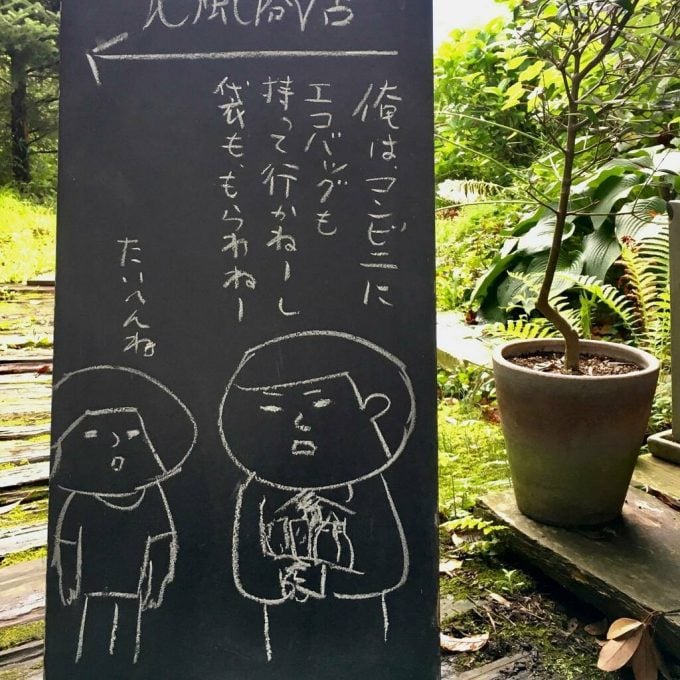 俺は、コンビニに
エコバッグも
持って行かねーし
袋も、もらわねー
たいへんね